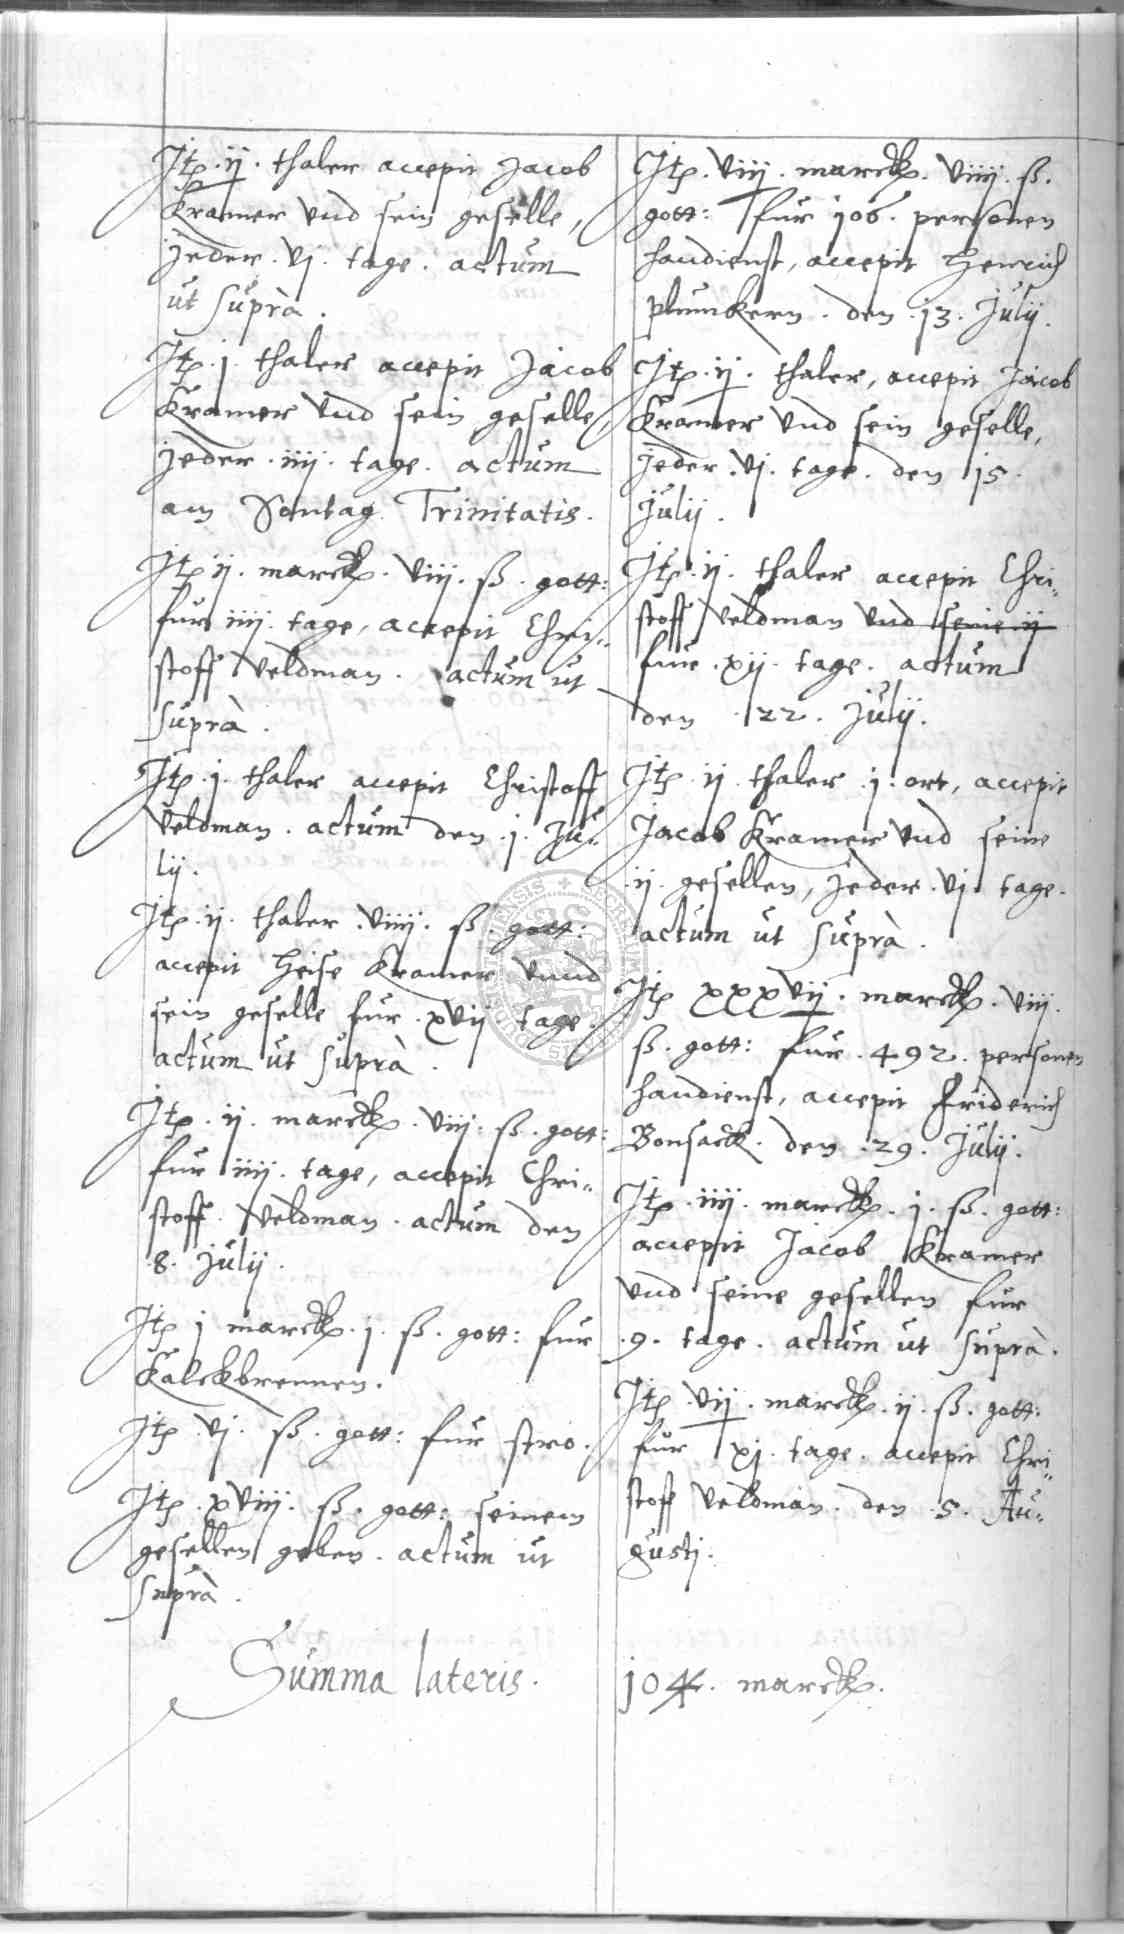 Jtꝫ. ij. thaler accepit Jacob
Kramer vnd sein geselle,
jeder. vj. tage. actum
ut suprà.
Jtꝫ. j. thaler accepit Jacob
Kramer vnd sein geselle,
jeder. iiij. tage. actum
am Sontag Trinitatis.
Jtꝫ ij. marck. viij. ß. gott:
fur iiij. tage, accepit Chri„
stoff Veldman. actum ut
suprà.
Jtꝫ. j. thaler accepit Christoff
Veldman. actum den. j. Ju„
lij.
Jtꝫ. ij. thaler. viiij. ß. gott:
accepit Heise Kramer vnnd
sein geselle fur. xvij tage.
actum ut suprà.
Jtꝫ. ij. marck. viij. ß. gott:
fur iiij. tage, accepit Chri„
stoff. Veldman. actum den
8. Julij.
Jtꝫ j marck. j. ß. gott: fur
Kalckbrennen.
Jtꝫ. vj. ß. gott: fur stro.
Jtꝫ. xviij. ß. gott: seinem
gesellen geben. actum ut
suprà.
Summa lateris.
Jtꝫ. viij. marck. viiij. ß.
gott: fur 106. personen
handienst, accepit Henrich
Plumkern. den. 13. Julij.
Jtꝫ. ij. thaler, accepit Jacob
Kramer vnd sein geselle,
jeder. vj. tage. den 15.
Julij.
Jtꝫ. ij. thaler accepit Chri„
stoff Veldman vnd seine ij
fur. xij. tage. actum
den. 22. Julij.
Jtꝫ ij thaler. j. ort, accepit
Jacob Kramer vnd seine
ij. gesellen, jeder. vj. tage.
actum ut suprà.
Jtꝫ xxxvij. marck. viij.
ß. gott: fur. 492. personen
handienst, accepit Friderich
Bonsack. den. 29. Julij.
Jtꝫ. iiij. marck. j. ß. gott:
accepit Jacob Kramer
vnd seine gesellen fur
.9. tage. actum ut suprà.
Jtꝫ. vij. marck. ij. ß. gott:
fur xj. tage. accepit Chri„
stoff Veldman. den. 5. Au„
gustj.
104. marck.